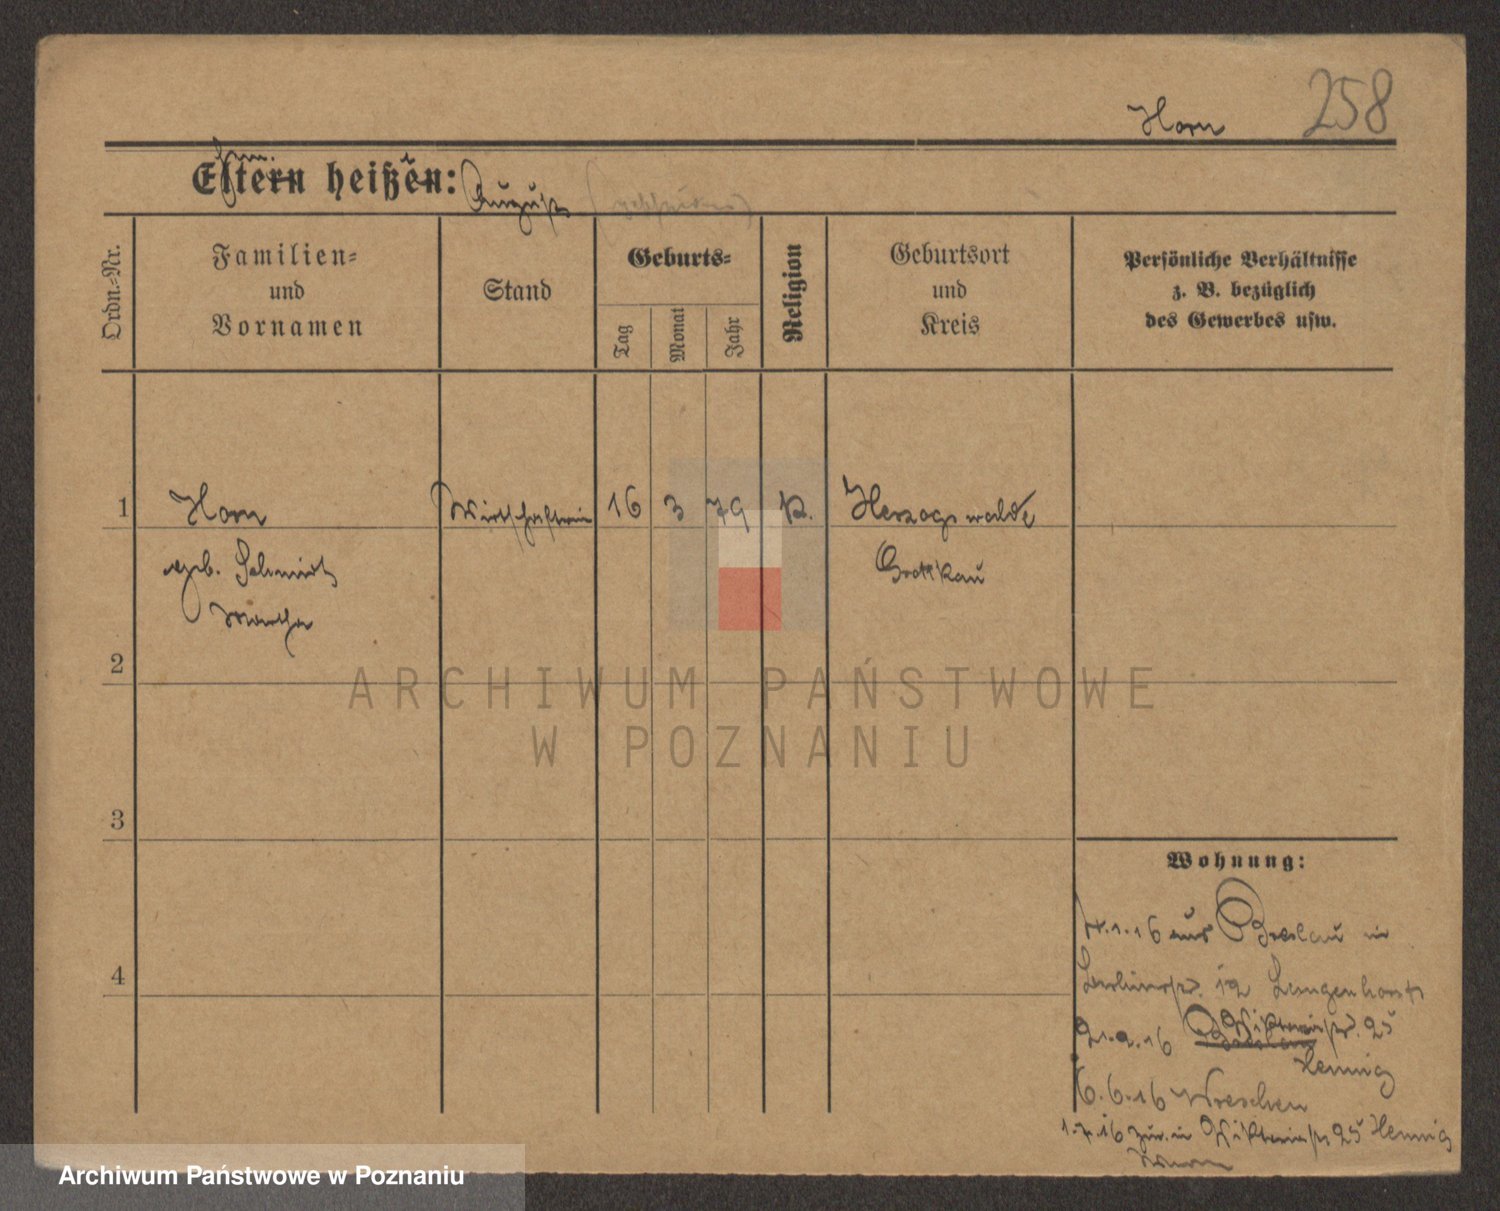 Horn 258
Eltern heißen: August
Ordn.-Nr.
Familien-
und
Vornamen
Stand
Geburts-
Tag
Monat
Jahr
Religion
Geburtsort
und
Kreis
Persönliche Verhältnisse
z. B. bezüglich
des Gewerbes usw.
1 Horn Wirtschafterin 16 3 79 K. Herzogswalde
geb. Schmidt Grottkau
Martha
2
3
4
Wohnung:
1.16 aus Breslau in
19 Langenhorst
21.2.16 Viktoriastr. 25
Hennig
6.6.16 Wreschen
1.7.16 zur. in Viktoriastr 25 Hennig
ARCHIWUM PAŃSTWOWE
W POZNANIU
Archiwum Państwowe w Poznaniu